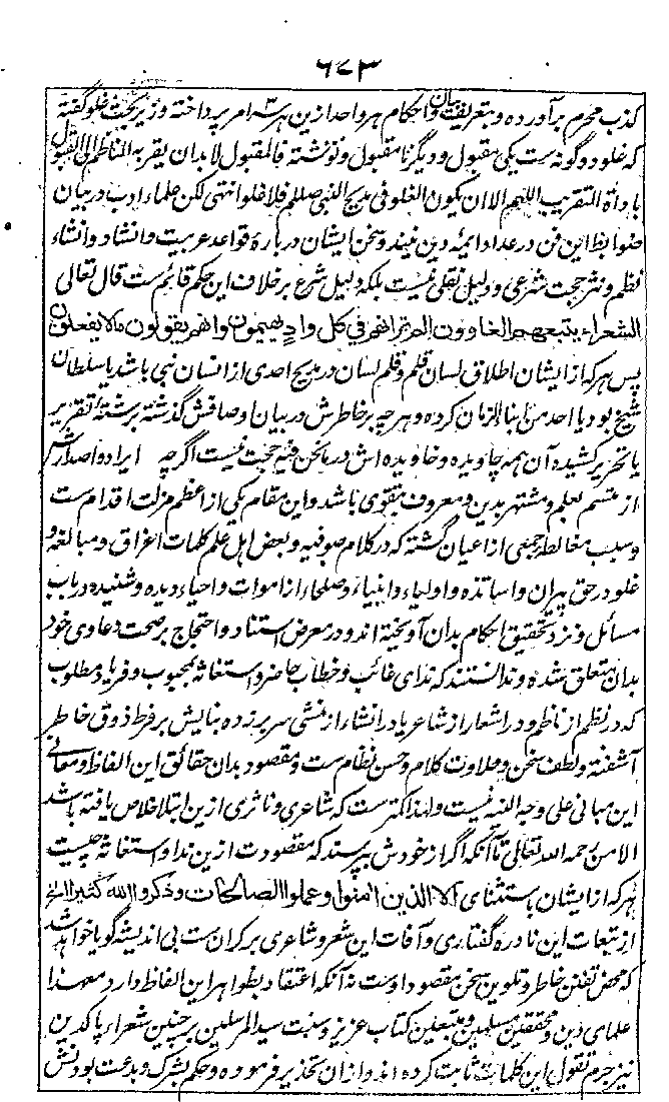 ٦٧٣
کذب محرم برآورده و بتعریف و بیان احکام هر واحد ازین هر سه امر پرداخته و زیر بحث غلو گفته
که غلو دو گونه ست یکی مقبول و دیگر نامقبول و نوشته فالمقبول لابد ان یقربه الناظم الی القبول
باداة التقریب اللهم الا ان یکون الغلو فی مدیح النبی صللم فلا غلو انتهی لکن علماء ادب در بیان
ضوابط این فن در عداد ائمه دین نیند و سخن ایشان در بارهٔ قواعد عربیت و انشاد و انشاء
نظم و نثر حجت شرعی و دلیل نقلی نیست بلکه دلیل شرع بر خلاف این حکم قائم ست قال تعالی
الشعراء یتبعهم الغاوون الم تر انهم فی کل واد یهیمون وانهم یقولون مالا یفعلون
پس هر که از ایشان اطلاق لسان قلم و قلم لسان در مدیح احدی از انسان نبی باشد یا سلطان
شیخ بود یا احد من ابناء الزمان کرده و هر چه بر خاطرش در بیان اوصافش گذشته برشتهٔ تقریر
یا تحریر کشیده آن همه چاویده و خاویده اش در ما نحن فیه حجت نیست اگرچه ایراد و اصدارش
از متسم بعلم و مشتهر بدین و معروف بتقوی باشد و این مقام یکی از اعظم مزلت اقدام ست
و سبب مغالطه جمعی از اعیان گشته که در کلام صوفیه و بعض اهل علم کلمات اغراق و مبالغه و
غلو در حق پیران و اساتذه و اولیاء و انبیاء و صلحاء از اموات و احیاء دیده و شنیده در باب
مسائل و نزد تحقیق احکام بدان آویخته اند و در معرض استناد و احتجاج بر صحت دعاوی خود
بدان متعلق شده و ندانستند که ندای غائب و خطاب حاضر و استغاثه بمحبوب و فریاد مطلوب
که در نظم از ناظم و در اشعار از شاعر یا در انشاء از منشی سر بر زده بنایش بر فرط ذوق خاطر
آشفته و لطف سخن و حلاوت کلام و حسن نظام ست و مقصود بدان حقائق این الفاظ و معانی
این مبانی علی وجه البته نیست و لهذا کمتر ست که شاعری و ناثری ازین ابتلا خلاص یافته باشد
الا من رحمه الله تعالی تا آنکه اگر از خودش بپرسند که مقصودت ازین ندا و استغاثه چیست
هر که از ایشان باستثنای الا الذین امنوا وعملوا الصالحات وذکروا الله کثیرا الخ
از تبعات این نادره گفتاری و آفات این شعر و شاعری بر کران ست بی اندیشه گویا خواهد شد
که محض تفنن خاطر و تلوین سخن مقصود اوست نه آنکه اعتقاد بظواهر این الفاظ دارد معهذا
علمای دین و محققین مسلمین و متبعین کتاب عزیز و سنت سید المرسلین بر چنین شعراء پاکدین
نیز جرم تقول این کلمات ثابت کرده اند و ازان تحذیر فرموده و حکم بشرک و بدعت بودنش